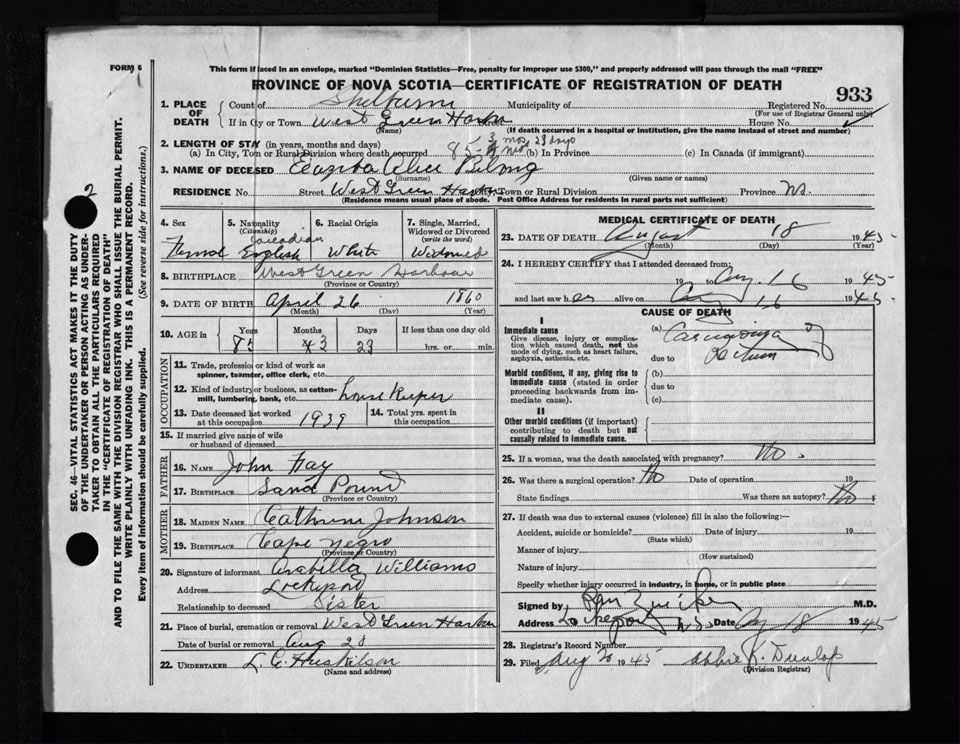 FORM 6
This form if laced in an envelope, marked "Dominion Statistics—Free, penalty for improper use $300," and properly addressed will pass through the mail "FREE"
PROVINCE OF NOVA SCOTIA—CERTIFICATE OF REGISTRATION OF DEATH
933
1. PLACE OF DEATH
Count of Shelburne Municipality of Registered No.
(For use of Registrar General only)
If in City or Town West Green Harbor Street House No.
(Name) (If death occurred in a hospital or institution, give the name instead of street and number)
2. LENGTH OF STAY (in years, months and days) 3 mos 23 days
(a) In City, Town or Rural Division where death occurred 85 (b) In Province (c) In Canada (if immigrant)
3. NAME OF DECEASED Alice
(Surname) (Given name or names)
RESIDENCE No. Street West Green Harbor City, Town or Rural Division Province NS.
(Residence means usual place of abode. Post Office Address for residents in rural parts not sufficient)
4. Sex 5. Nationality (Citizenship) 6. Racial Origin 7. Single, Married, Widowed or Divorced (write the word)
Femal Canadian English White Widowed
8. BIRTHPLACE West Green Harbour
(Province or Country)
9. DATE OF BIRTH April 26 1860
(Month) (Day) (Year)
10. AGE in Years Months Days If less than one day old
85 3 23 hrs. or min.
OCCUPATION
11. Trade, profession or kind of work as spinner, teamster, office clerk, etc.
12. Kind of industry or business, as cotton-mill, lumbering, bank, etc. house Keeper
13. Date deceased last worked at this occupation 1939 14. Total yrs. spent in this occupation
15. If married give name of wife or husband of deceased
FATHER
16. NAME John Hay
17. BIRTHPLACE Sand Point
(Province or Country)
MOTHER
18. MAIDEN NAME Cathrine Johnson
19. BIRTHPLACE Cape Negro
(Province or Country)
20. Signature of informant Arabilla Williams
Address Lockeport
Relationship to deceased Sister
21. Place of burial, cremation or removal West Green Harbor
Date of burial or removal Aug 20
22. UNDERTAKER L. C. Huskilson
(Name and address)
MEDICAL CERTIFICATE OF DEATH
23. DATE OF DEATH August 18 1945
(Month) (Day) (Year)
24. I HEREBY CERTIFY that I attended deceased from:
19 to Aug. 16 1945
and last saw her alive on Aug 16 1945.
CAUSE OF DEATH
I
Immediate cause
Give disease, injury or complication which caused death, not the mode of dying, such as heart failure, asphyxia, asthenia, etc.
(a) Carcinoma of
due to Rectum
Morbid conditions, if any, giving rise to immediate cause (stated in order proceeding backwards from immediate cause).
(b)
due to
(c)
II
Other morbid conditions (if important) contributing to death but not causally related to immediate cause.
25. If a woman, was the death associated with pregnancy? No.
26. Was there a surgical operation? No Date of operation 19
State findings Was there an autopsy? No
27. If death was due to external causes (violence) fill in also the following:—
Accident, suicide or homicide? Date of injury 19
(State which)
Manner of injury
(How sustained)
Nature of injury
Specify whether injury occurred in industry, in home, or in public place
Signed by M.D.
Address Lockeport N.S. Date Aug 18 1945
28. Registrar's Record Number
29. Filed Aug 20 1945 Abbie K. Dunlop
(Division Registrar)
2
SEC. 46—VITAL STATISTICS ACT MAKES IT THE DUTY
OF THE UNDERTAKER OR PERSON ACTING AS UNDERTAKER TO OBTAIN ALL THE PARTICULARS REQUIRED
IN THE "CERTIFICATE OF REGISTRATION OF DEATH"
AND TO FILE THE SAME WITH THE DIVISION REGISTRAR WHO SHALL ISSUE THE BURIAL PERMIT.
WRITE PLAINLY WITH UNFADING INK. THIS IS A PERMANENT RECORD.
Every item of information should be carefully supplied. (See reverse side for instructions.)